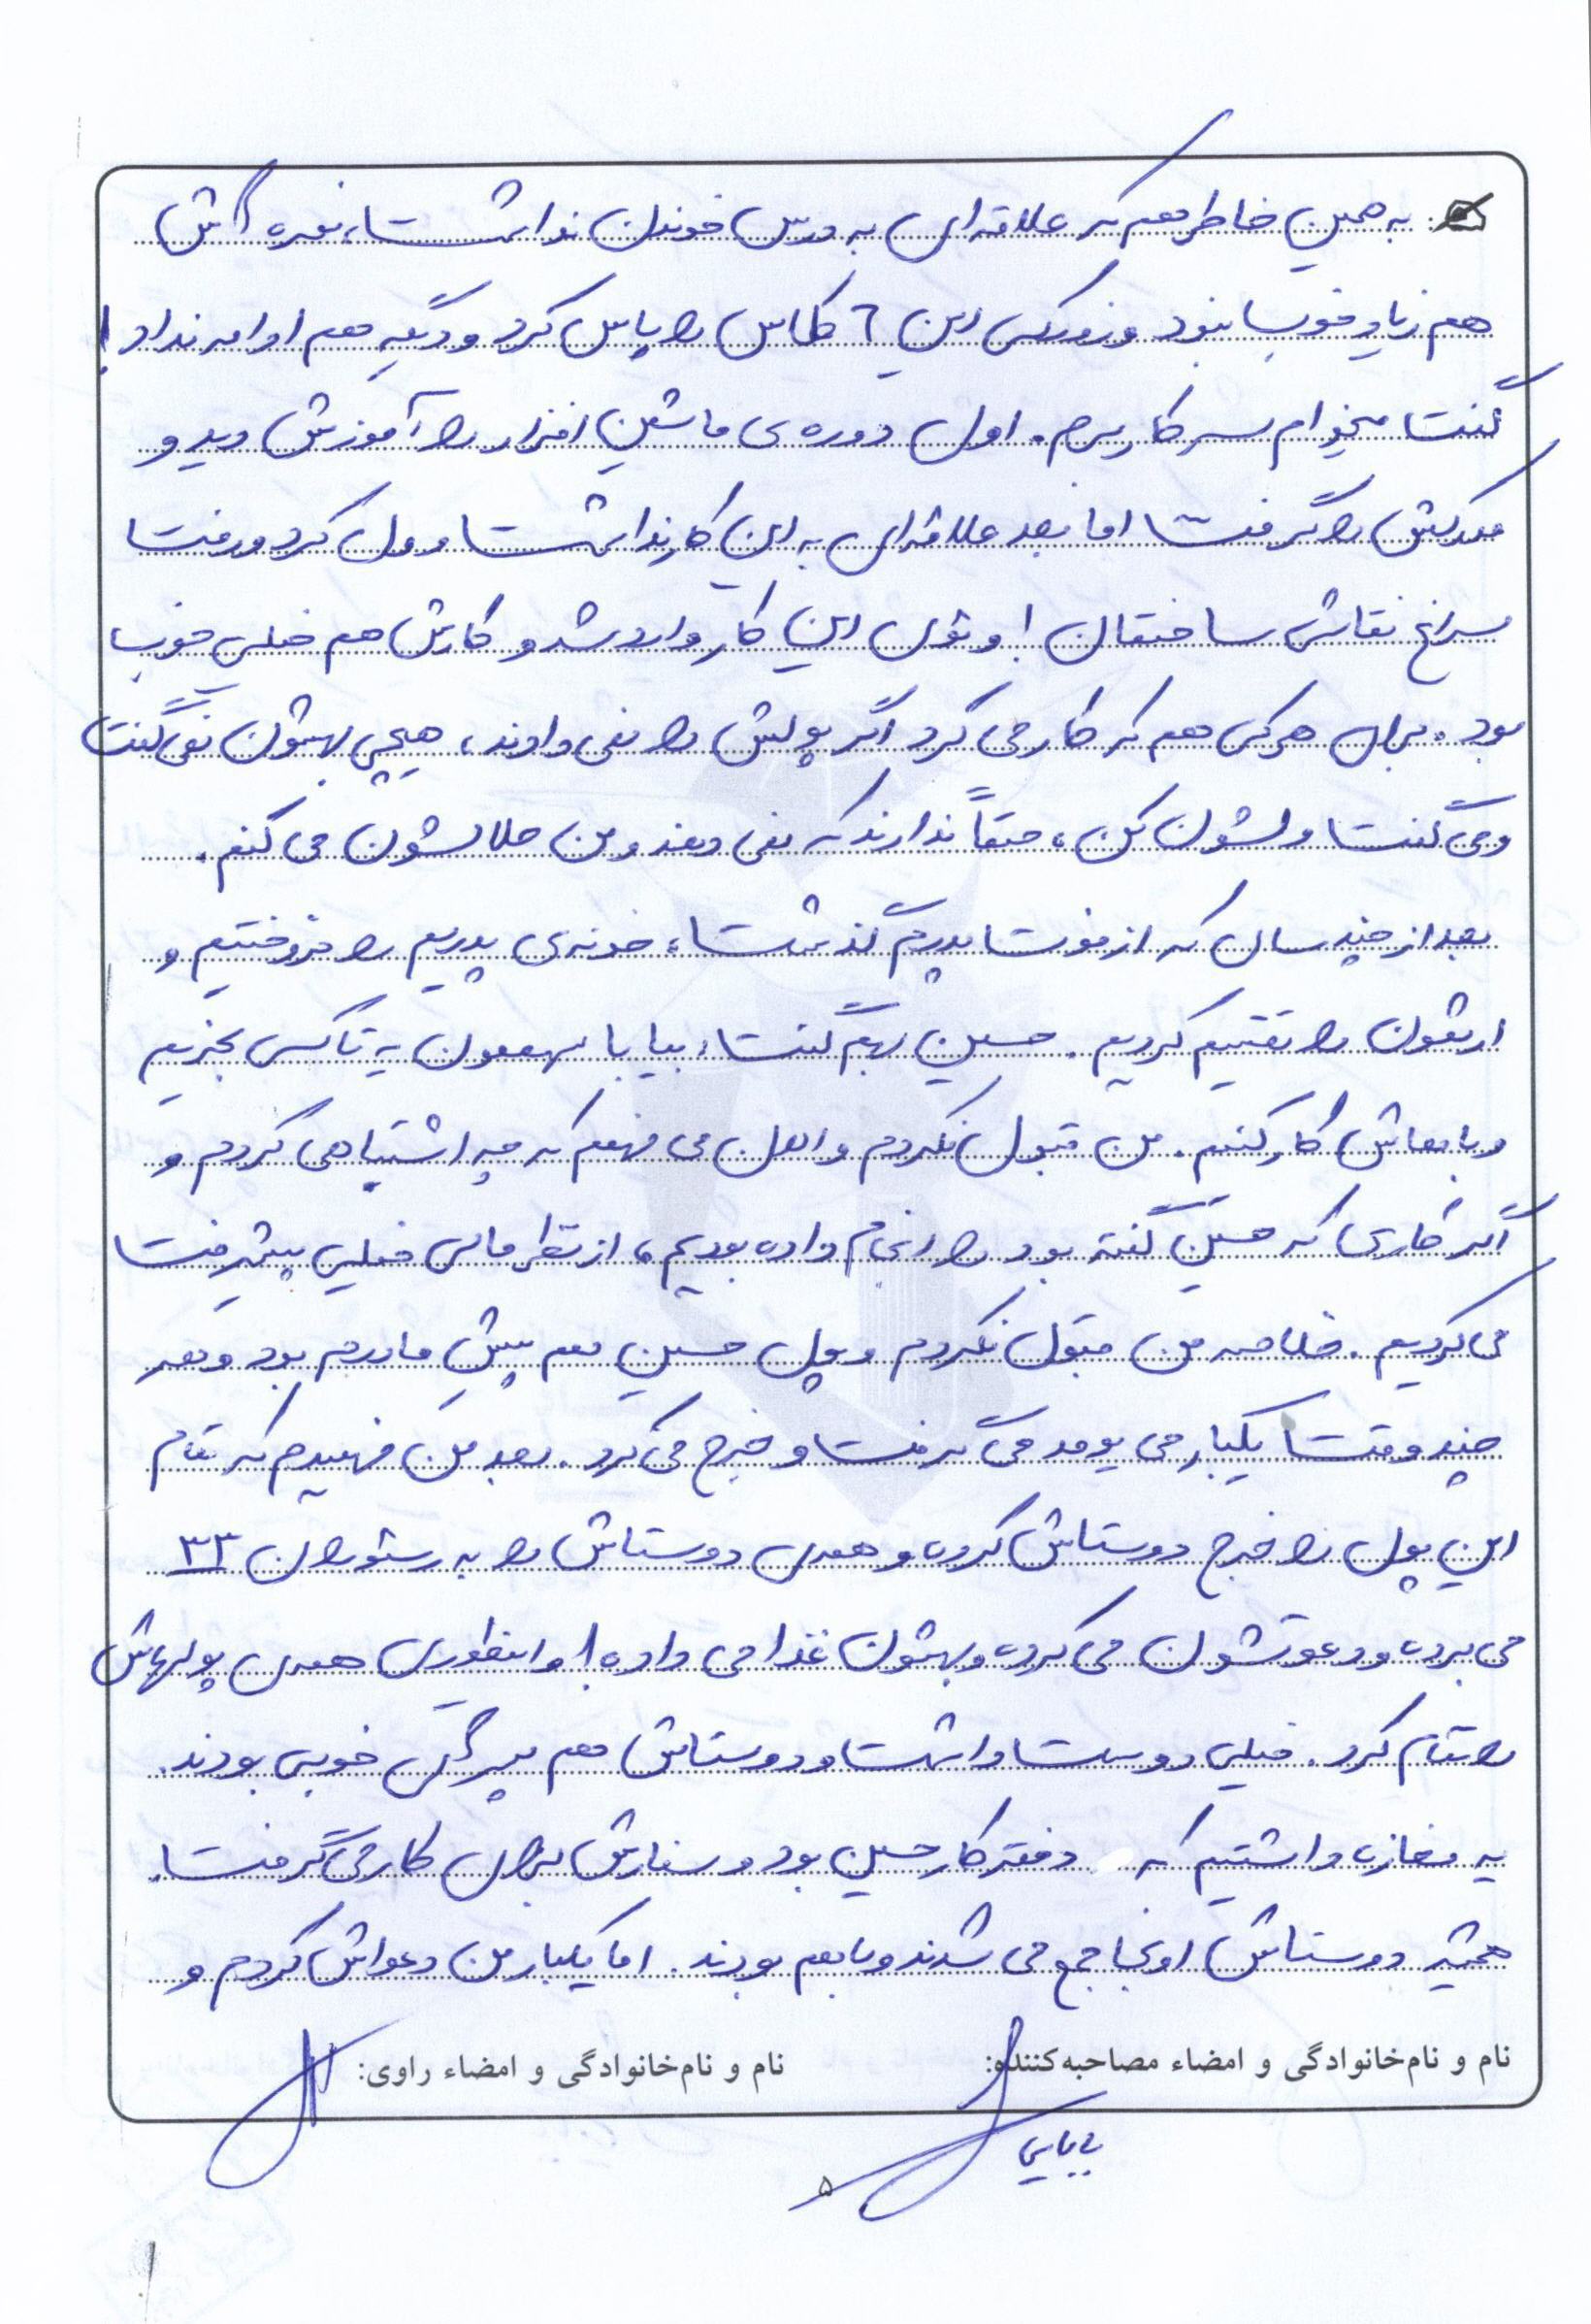 به همین خاطر هم که علاقه‌ای به درس خوندن نداشت، نمره هاش
هم زیاد خوب نبود و زورکی این ۶ کلاس را پاس کرد و دیگه هم ادامه نداد!
گفت میخوام سر کار برم. اول دوره‌ی ماشین افزار را آموزش دید و
مدرکش را گرفت اما بعد علاقه‌ای به این کار نداشت و ول کرد و رفت
سراغ نقاشی ساختمان! و توی این کار وارد شد و کارش هم خیلی خوب
بود. برای هرکی هم که کار می کرد اگر پولش را نمی دادند، هیچی بهشون نمی گفت
و می گفت ولشون کن، حتماً ندارند که نمی دهند و من حلالشون می کنم.
بعد از چند سال که از فوت پدرم گذشت، خونه‌ی پدریم را فروختیم و
ارثمون را تقسیم کردیم. حسین بهم گفت، بیا با سهممون یه تاکسی بخریم
و باهاش کار کنیم. من قبول نکردم و الان می فهمم که چه اشتباهی کردم و
اگر کاری که حسین گفته بود را انجام داده بودیم، از نظر مالی خیلی پیشرفت
می کردیم. خلاصه من قبول نکردم و پول حسین هم پیشِ مادرم بود و هر
چند وقت یکبار می یومد می گرفت و خرج می کرد. بعد من فهمیدم که تمام
این پول را خرج دوستاش کرده و همه‌ی دوستاش را به رستوران ۳۳
می برده و دعوتشون می کرده و بهشون غذا می داده! و اینطوری همه‌ی پولهاش
را تمام کرد. خیلی دوست داشت و دوستاش هم بچه های خوبی بودند.
یه مغازه داشتیم که دفتر کار حسین بود و سفارش برای کار می گرفت.
همیشه دوستاش اونجا جمع می شدند و با هم بودند. اما یکبار من دعواش کردم و
نام و نام‌خانوادگی و امضاء مصاحبه‌کننده: نام و نام‌خانوادگی و امضاء راوی:
بابایی
۵